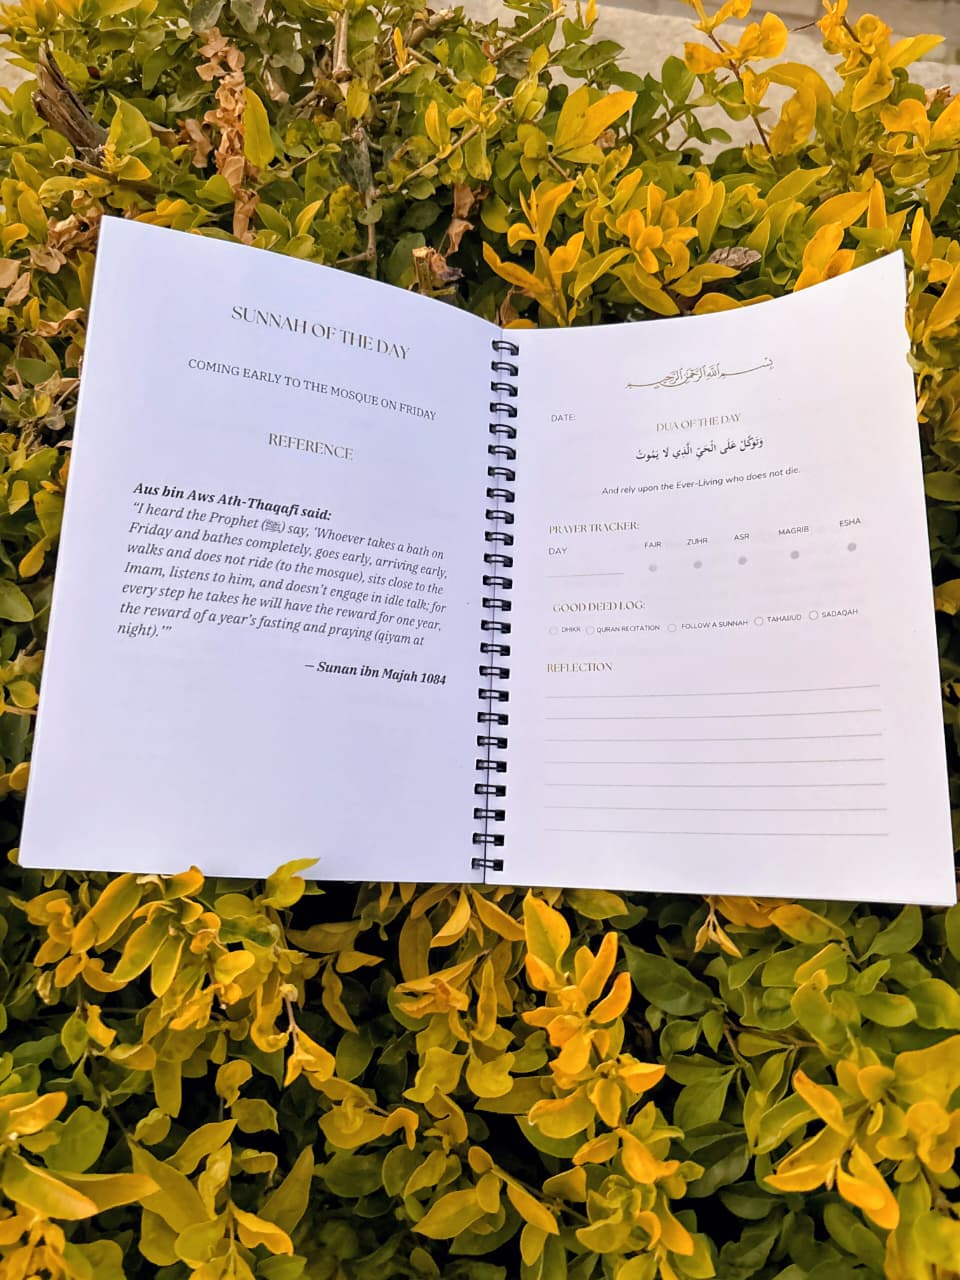 SUNNAH OF THE DAY
COMING EARLY TO THE MOSQUE ON FRIDAY
REFERENCE
Aus bin Aws Ath-Thaqafi said:
“I heard the Prophet (ﷺ) say, ‘Whoever takes a bath on
Friday and bathes completely, goes early, arriving early,
walks and does not ride (to the mosque), sits close to the
Imam, listens to him, and doesn’t engage in idle talk; for
every step he takes he will have the reward for one year,
the reward of a year’s fasting and praying (qiyam at
night).’”
— Sunan ibn Majah 1084
بسم الله الرحمن الرحيم
DATE:
DUA OF THE DAY
وَتَوَكَّلْ عَلَى الْحَيِّ الَّذِي لَا يَمُوتُ
And rely upon the Ever-Living who does not die.
PRAYER TRACKER:
DAY FAJR ZUHR ASR MAGRIB ESHA
GOOD DEED LOG:
DHIKR QURAN RECITATION FOLLOW A SUNNAH TAHAJJUD SADAQAH
REFLECTION